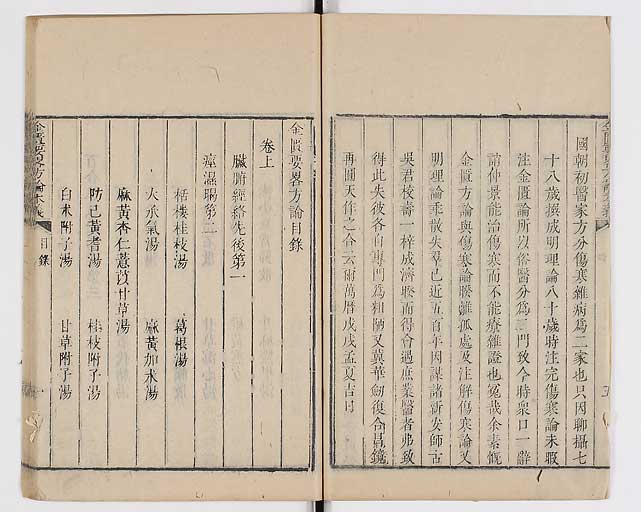 國朝初醫家方分傷寒雜病為二家也只因聊攝七
十八歲撰成明理論八十歲時注完傷寒論未暇
注金匱論所以俗醫分為二門致今時衆口一辭
誚仲景能治傷寒而不能療雜證也冤哉余素慨
金匱方論與傷寒論睽離孤處及注解傷寒論又
明理論乖散失羣已近五百年因謀諸新安師古
吳君校壽一梓成濟睽而得會遇庶業醫者弗致
得此失彼各自專門為粗陋又冀華劒復合昌鏡
再圓天作之合云爾萬曆戊戌孟夏吉日
金匱要畧方論目錄
卷上
臟腑經絡先後第一
痙濕暍第二
栝樓桂枝湯
葛根湯
大承氣湯
麻黃加朮湯
麻黃杏仁薏苡甘草湯
防已黃耆湯
桂枝附子湯
白朮附子湯
甘草附子湯
金匱要畧方論本義
目錄
一